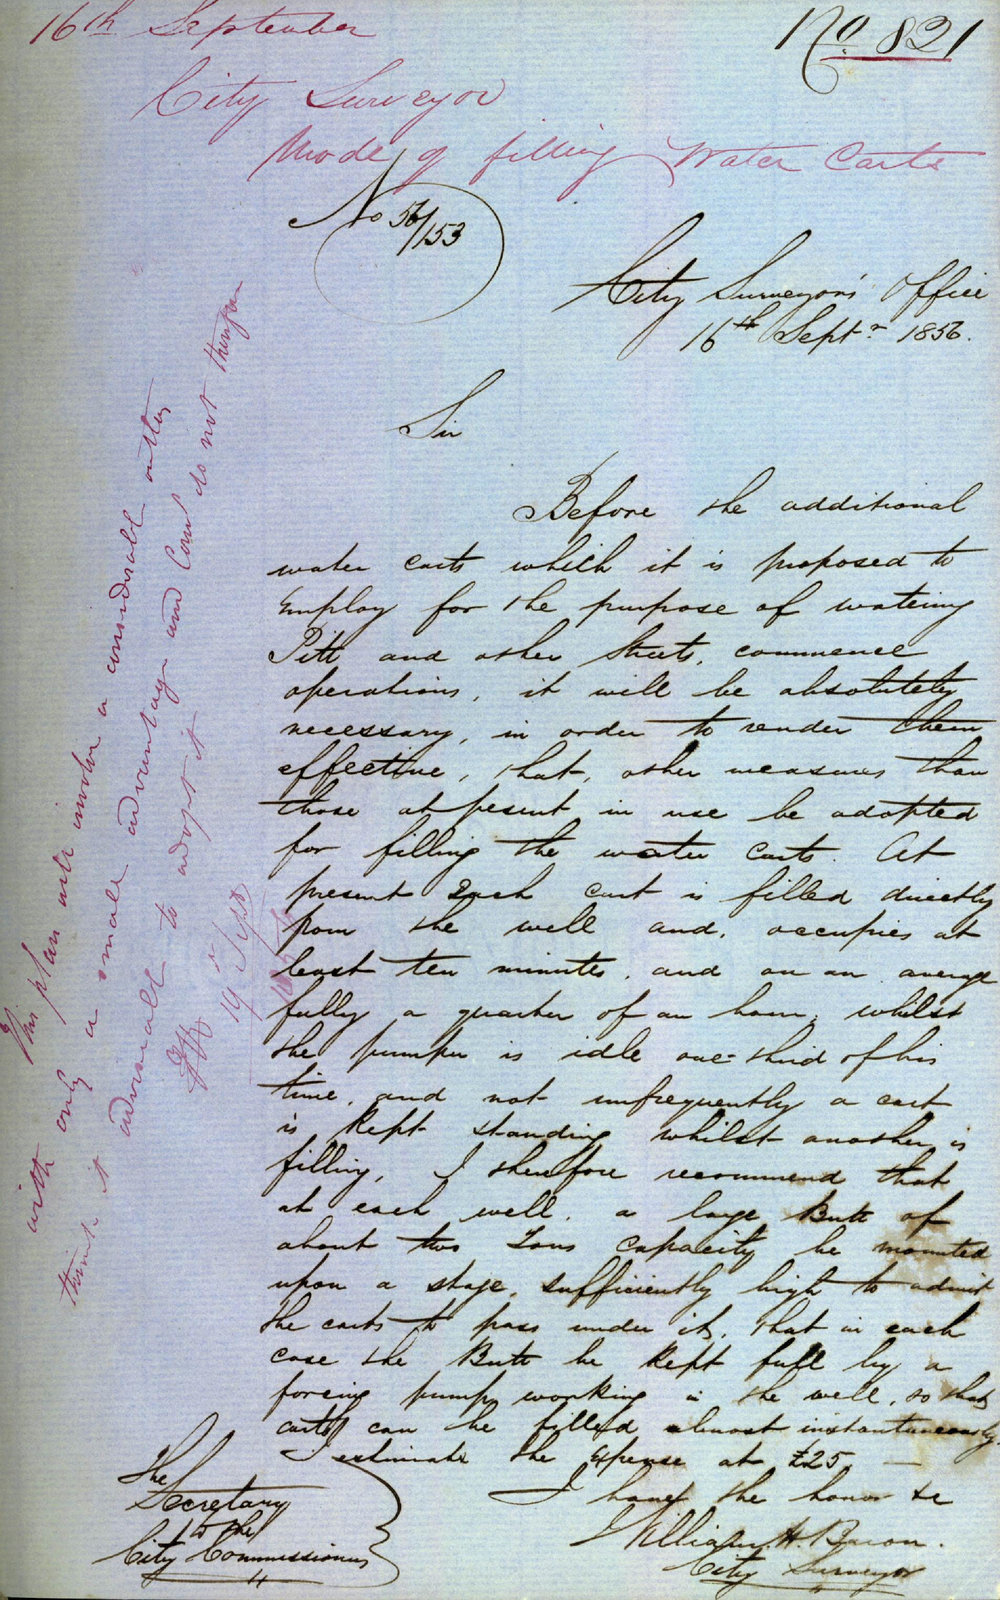 16th September
No. 821
City Surveyor
Mode of filling Water Carts
No 56/153
City Surveyor's Office
16th Septr 1856.
Sir
Before the additional
water carts which it is proposed to
employ for the purpose of watering
Pitt and other Streets, commence
operations, it will be absolutely
necessary, in order to render them
effective, that, other measures than
those at present in use be adopted
for filling the water carts. At
present each cart is filled directly
from the well and, occupies at
least ten minutes, and on an average
fully a quarter of an hour, whilst
the pumper is idle one-third of his
time, and not unfrequently a cart
is kept standing whilst another is
filling, I therefore recommend that
at each well, a large Butt of
about two Tons capacity be mounted
upon a stage, sufficiently high to admit
the carts to pass under it, that in each
case the Butt be kept full by a
forcing pump working in the well, so that
carts can be filled almost instantaneously.
I estimate the expense at £25.
I have the honor &c
William H. Bacon.
City Surveyor
The
Secretary
to the
City Commissioners
This plan will involve a considerable outlay
with only a small advantage and Com do not therefore
think it advisable to adopt it
19 Sept